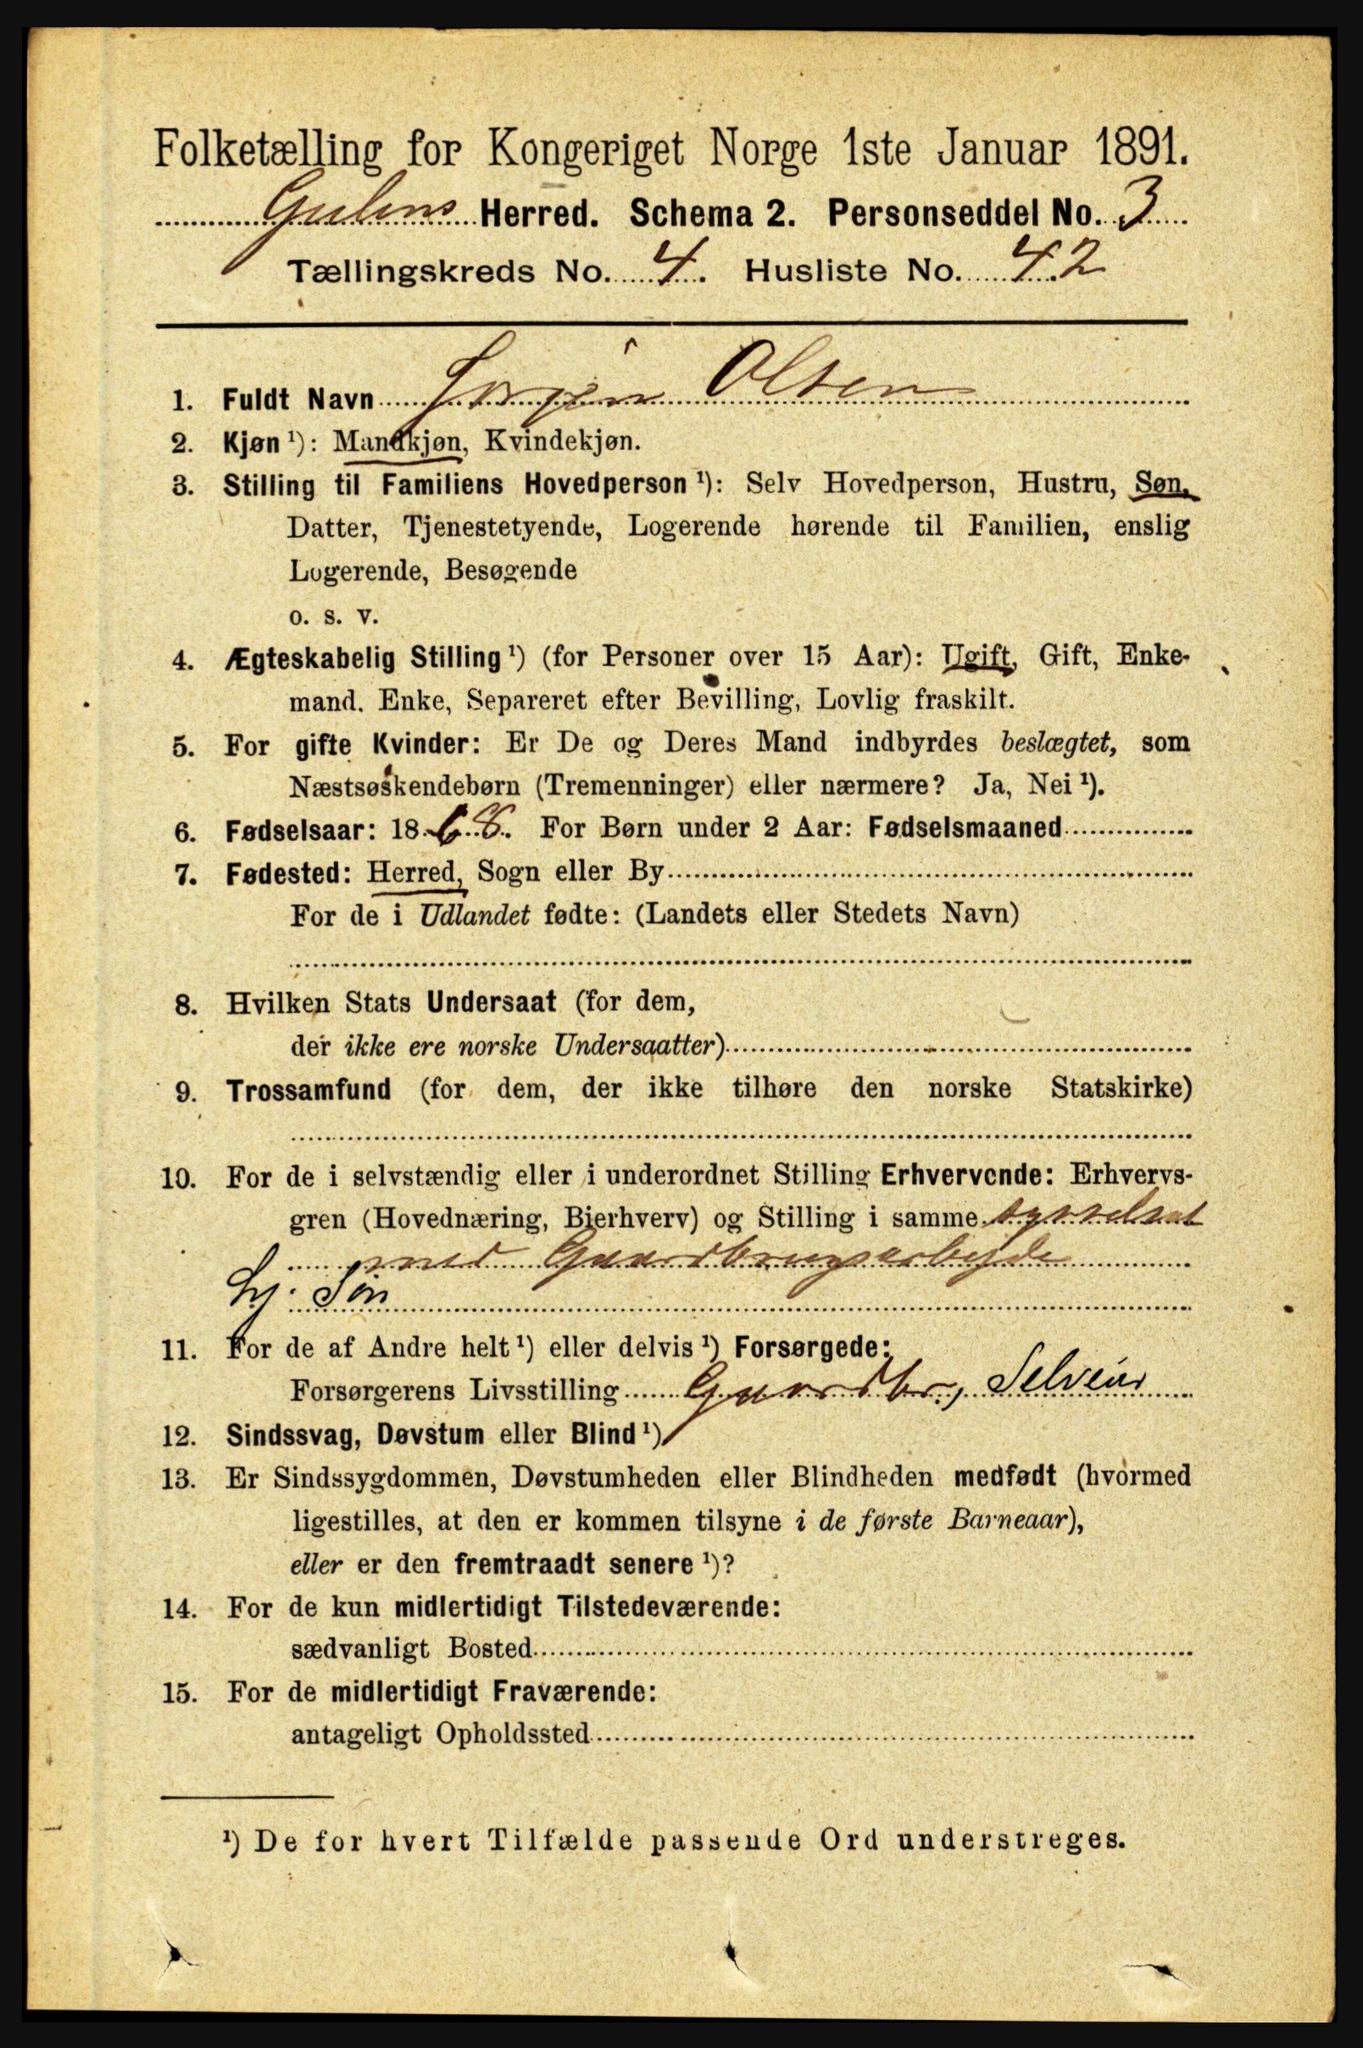 Folketælling for Kongeriget Norge 1ste Januar 1891.
Gulens Herred. Schema 2. Personseddel No. 3
Tællingskreds No. 4. Husliste No. 42
1. Fuldt Navn Jørgen Olsen
2. Kjøn ¹): Mandkjøn, Kvindekjøn.
3. Stilling til Familiens Hovedperson ¹): Selv Hovedperson, Hustru, Søn,
Datter, Tjenestetyende, Logerende hørende til Familien, enslig
Logerende, Besøgende
o. s. v.
4. Ægteskabelig Stilling ¹) (for Personer over 15 Aar): Ugift, Gift, Enke-
mand, Enke, Separeret efter Bevilling, Lovlig fraskilt.
5. For gifte Kvinder: Er De og Deres Mand indbyrdes beslægtet, som
Næstsøskendebørn (Tremenninger) eller nærmere? Ja, Nei ¹).
6. Fødselsaar: 1868. For Børn under 2 Aar: Fødselsmaaned
7. Fødested: Herred, Sogn eller By
For de i Udlandet fødte: (Landets eller Stedets Navn)
8. Hvilken Stats Undersaat (for dem,
der ikke ere norske Undersaatter)
9. Trossamfund (for dem, der ikke tilhøre den norske Statskirke)
10. For de i selvstændig eller i underordnet Stilling Erhvervende: Erhvervs-
gren (Hovednæring, Bierhverv) og Stilling i samme sysselsat
med Gaardbrugsarbejde
hj. Søn
11. For de af Andre helt ¹) eller delvis ¹) Forsørgede:
Forsørgerens Livsstilling Gaardbr, Selveier
12. Sindssvag, Døvstum eller Blind ¹)
13. Er Sindssygdommen, Døvstumheden eller Blindheden medfødt (hvormed
ligestilles, at den er kommen tilsyne i de første Barneaar),
eller er den fremtraadt senere ¹)?
14. For de kun midlertidigt Tilstedeværende:
sædvanligt Bosted
15. For de midlertidigt Fraværende:
antageligt Opholdssted
¹) De for hvert Tilfælde passende Ord understreges.